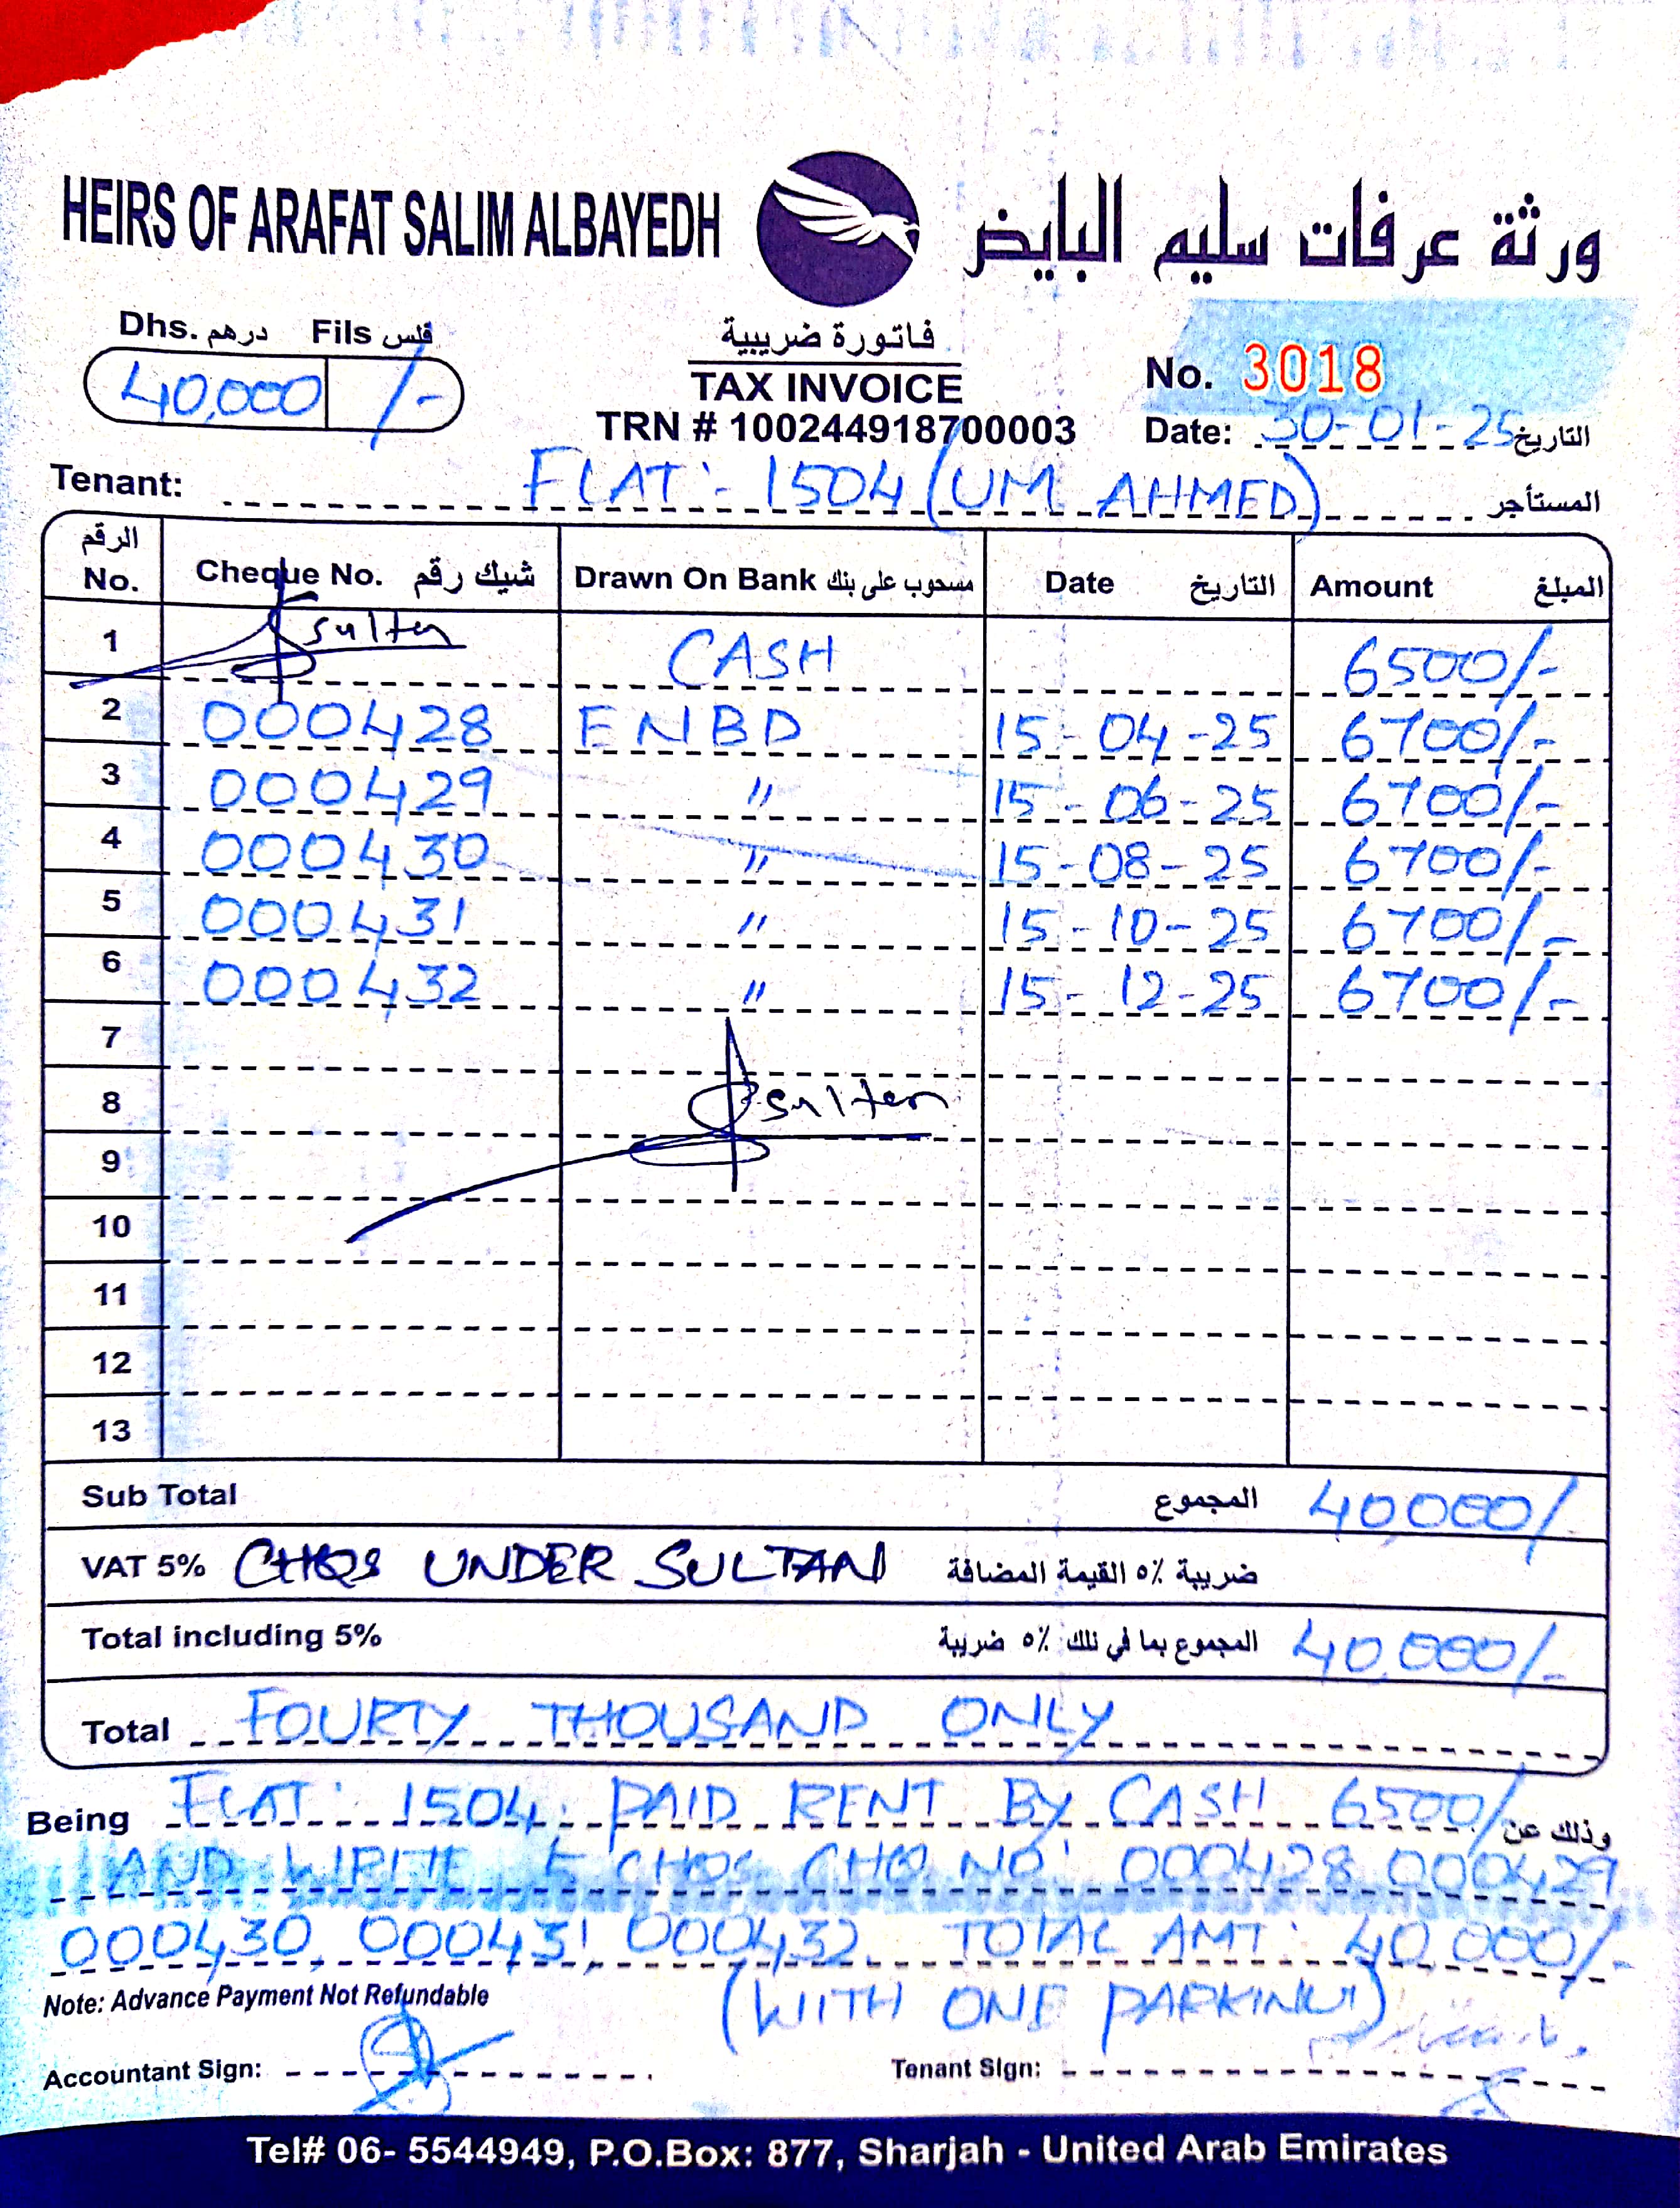 HEIRS OF ARAFAT SALIM ALBAYEDH ورثة عرفات سليم البايض
Dhs. درهم Fils فلس
40,000 /-
فاتورة ضريبية
TAX INVOICE
TRN # 100244918700003
No. 3018
Date: 30-01-25 التاريخ
Tenant: FLAT:- 1504 (UM AHMED) المستأجر
الرقم No. Cheque No. شيك رقم Drawn On Bank مسحوب على بنك Date التاريخ Amount المبلغ
1 sultan CASH 6500/-
2 000428 ENBD 15-04-25 6700/-
3 000429 〃 15-06-25 6700/-
4 000430 〃 15-08-25 6700/-
5 000431 〃 15-10-25 6700/-
6 000432 〃 15-12-25 6700/-
7
8 sultan
9
10
11
12
13
Sub Total المجموع 40,000/
VAT 5% CHQS UNDER SULTAN ضريبة ٥٪ القيمة المضافة
Total including 5% المجموع بما في ذلك ٥٪ ضريبة 40,000/-
Total FOURTY THOUSAND ONLY
Being FLAT: 1504. PAID RENT BY CASH 6500/ وذلك عن
AND WRITE 5 CHQS CHQ NO: 000428, 000429
000430, 000431, 000432. TOTAL AMT: 40,000/-
Note: Advance Payment Not Refundable (WITH ONE PARKING)
Accountant Sign: Tenant Sign:
Tel# 06- 5544949, P.O.Box: 877, Sharjah - United Arab Emirates